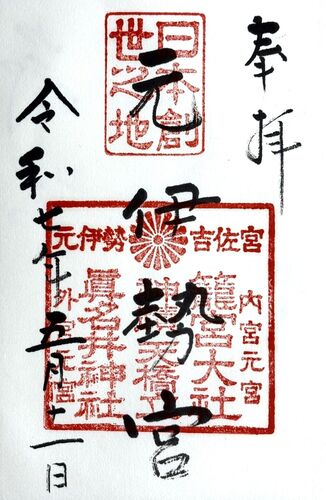 奉拝
日本創
世之地
元伊勢宮
元伊勢
吉佐宮
内宮元宮
籠宮大社
眞名井神社
令和七年五月十一日